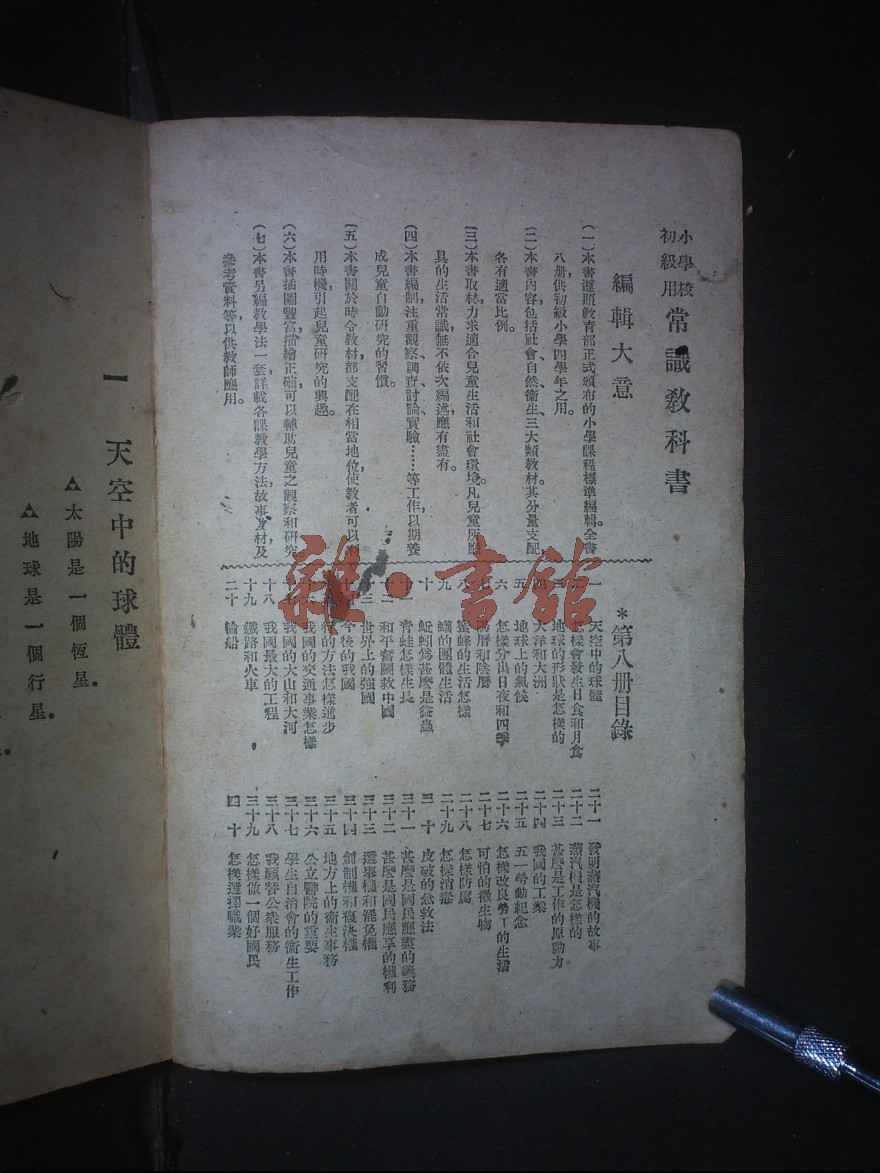 小學校
初級用
常識敎科書
編輯大意
(一)本書遵照敎育部正式頒布的小學課程標準編輯。全書
八册,供初級小學四學年之用。
(二)本書內容包括社會、自然、衞生、三大類敎材。其分量支配,
各有適當比例。
(三)本書取材,力求適合兒童生活和社會環境。凡兒童所應
具的生活常識,無不依次編述,應有盡有。
(四)本書編制,注重觀察、調查、討論、實驗……等工作,以期養
成兒童自動研究的習慣。
(五)本書關於時令敎材,都支配在相當地位,使敎者可以利
用時機,引起兒童研究的興趣。
(六)本書插圖豐富,描繪正確,可以輔助兒童之觀察和研究
(七)本書另編敎學法一套,詳載各課敎學方法,故事及材及
參考資料等,以供敎師應用。
*第八册目錄
一 天空中的球體
怎樣會發生日食和月食
三 地球的形狀是怎樣的
四 大洋和大洲
五 地球上的氣候
六 怎樣分出日夜和四季
七 陽曆和陰曆
八 蜜蜂的生活怎樣
九 蟻的團體生活
十 蚯蚓爲甚麼是益蟲
十一 靑蛙怎樣生長
十二 和平奮鬭救中國
十三 世界上的強國
十四 今後的我國
行的方法怎樣進步
十六 我國的交通事業怎樣
十七 我國的大山和大河
十八 我國最大的工程
十九 鐵路和火車
二十 輪船
二十一 發明蒸汽機的故事
二十二 蒸汽機是怎樣的
二十三 甚麼是工作的原動力
二十四 我國的工業
二十五 五一勞動紀念
二十六 怎樣改良勞工的生活
二十七 可怕的微生物
二十八 怎樣防腐
二十九 怎樣消毒
三十 皮破的急救法
三十一 甚麼是國民應盡的義務
三十二 甚麼是國民應享的權利
三十三 選舉權和罷免權
三十四 創制權和複決權
三十五 地方上的衞生事務
三十六 公立醫院的重要
三十七 學生自治會的衞生工作
三十八 我願替公衆服務
三十九 怎樣做一個好國民
四十 怎樣選擇職業
一 天空中的球體
△太陽是一個恆星。
△地球是一個行星。
雜·書館